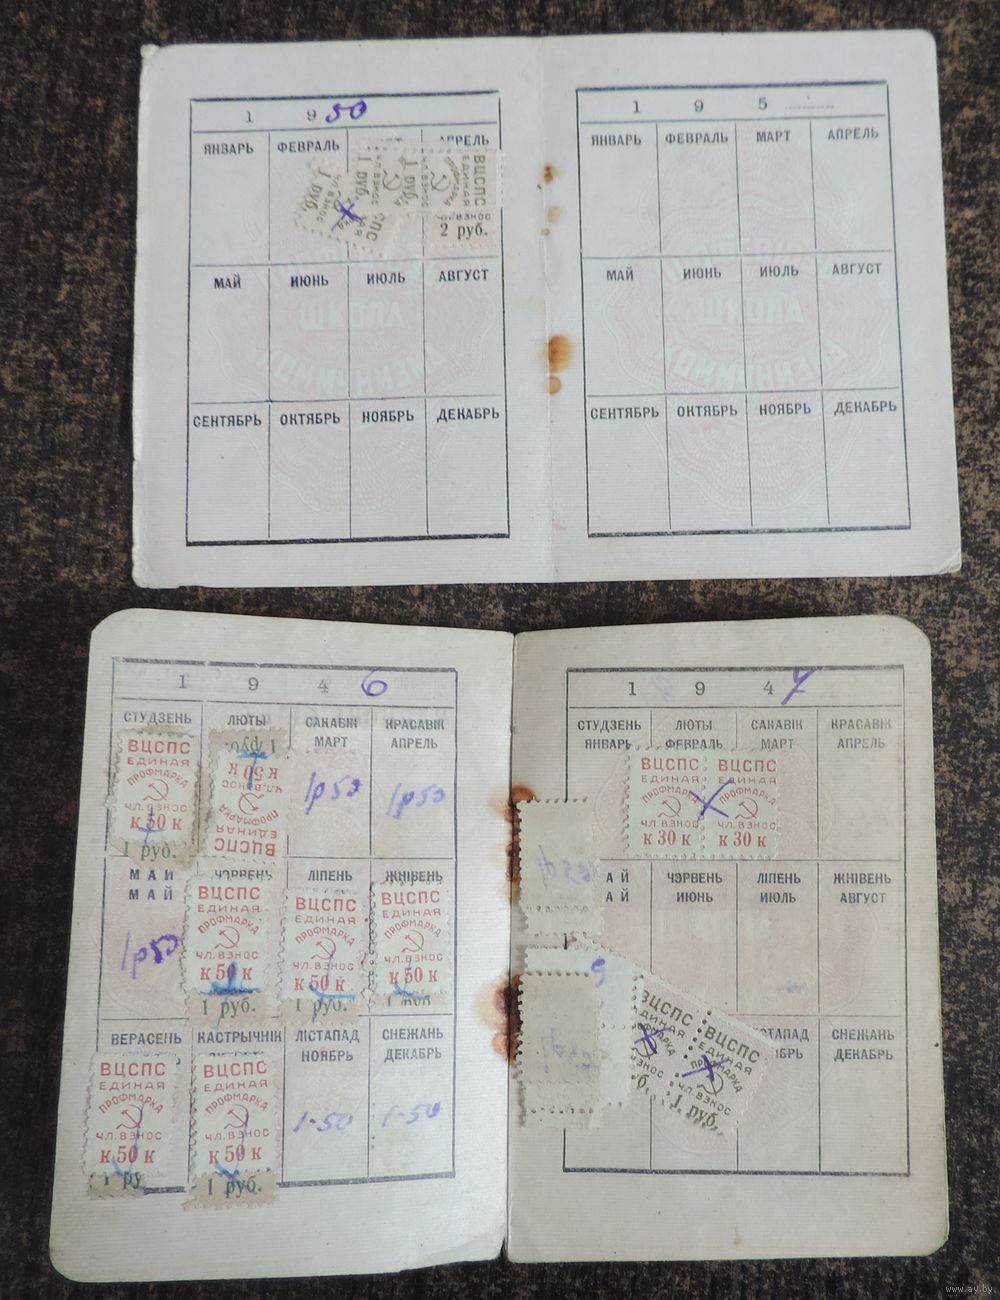 1 9 50
ЯНВАРЬ ФЕВРАЛЬ АПРЕЛЬ
1 руб. 1 руб. 1 руб.
ЧЛ. ВЗНОС
ВЦСПС
ЕДИНАЯ
ПРОФМАРКА
2 руб.
МАЙ ИЮНЬ ИЮЛЬ АВГУСТ
ШКОЛА
СЕНТЯБРЬ ОКТЯБРЬ НОЯБРЬ ДЕКАБРЬ
1 9 5
ЯНВАРЬ ФЕВРАЛЬ МАРТ АПРЕЛЬ
МАЙ ИЮНЬ ИЮЛЬ АВГУСТ
ШКОЛА
СЕНТЯБРЬ ОКТЯБРЬ НОЯБРЬ ДЕКАБРЬ
1 9 4 6
СТУДЗЕНЬ ЛЮТЫ САКАВІК КРАСАВІК
МАРТ АПРЕЛЬ
ВЦСПС 1 руб.
ЕДИНАЯ к 50 к
ПРОФМАРКА ЧЛ. ВЗНОС 1р50 1р50
ЧЛ. ВЗНОС ПРОФМАРКА
к 50 к ЕДИНАЯ
1 руб. ВЦСПС
МАЙ ЧЭРВЕНЬ ЛІПЕНЬ ЖНІВЕНЬ
МАЙ ВЦСПС ВЦСПС ВЦСПС
ЕДИНАЯ ЕДИНАЯ ЕДИНАЯ
ПРОФМАРКА ПРОФМАРКА ПРОФМАРКА
1р50 ЧЛ. ВЗНОС ЧЛ. ВЗНОС ЧЛ. ВЗНОС
к 50 к к 50 к к 50 к
1 руб. 1 руб. 1 руб.
ВЕРАСЕНЬ КАСТРЫЧНІК ЛІСТАПАД СНЕЖАНЬ
НОЯБРЬ ДЕКАБРЬ
ВЦСПС ВЦСПС
ЕДИНАЯ ЕДИНАЯ
ПРОФМАРКА ПРОФМАРКА
ЧЛ. ВЗНОС ЧЛ. ВЗНОС 1-50 1-50
к 50 к к 50 к
1 ру 1 руб.
1 9 4 7
СТУДЗЕНЬ ЛЮТЫ САКАВІК КРАСАВІК
ЯНВАРЬ ФЕВРАЛЬ МАРТ АПРЕЛЬ
ВЦСПС ВЦСПС
ЕДИНАЯ ЕДИНАЯ
ПРОФМАРКА ПРОФМАРКА
ЧЛ. ВЗНОС ЧЛ. ВЗНОС
к 30 к к 30 к
АЙ ЧЭРВЕНЬ ЛІПЕНЬ ЖНІВЕНЬ
АЙ ИЮНЬ ИЮЛЬ АВГУСТ
СТАПАД СНЕЖАНЬ
БРЬ ДЕКАБРЬ
ВЦСПС ВЦСПС
ЕДИНАЯ ЕДИНАЯ
ПРОФМАРКА
ЧЛ. ВЗНОС
1 руб.
www.ay.by